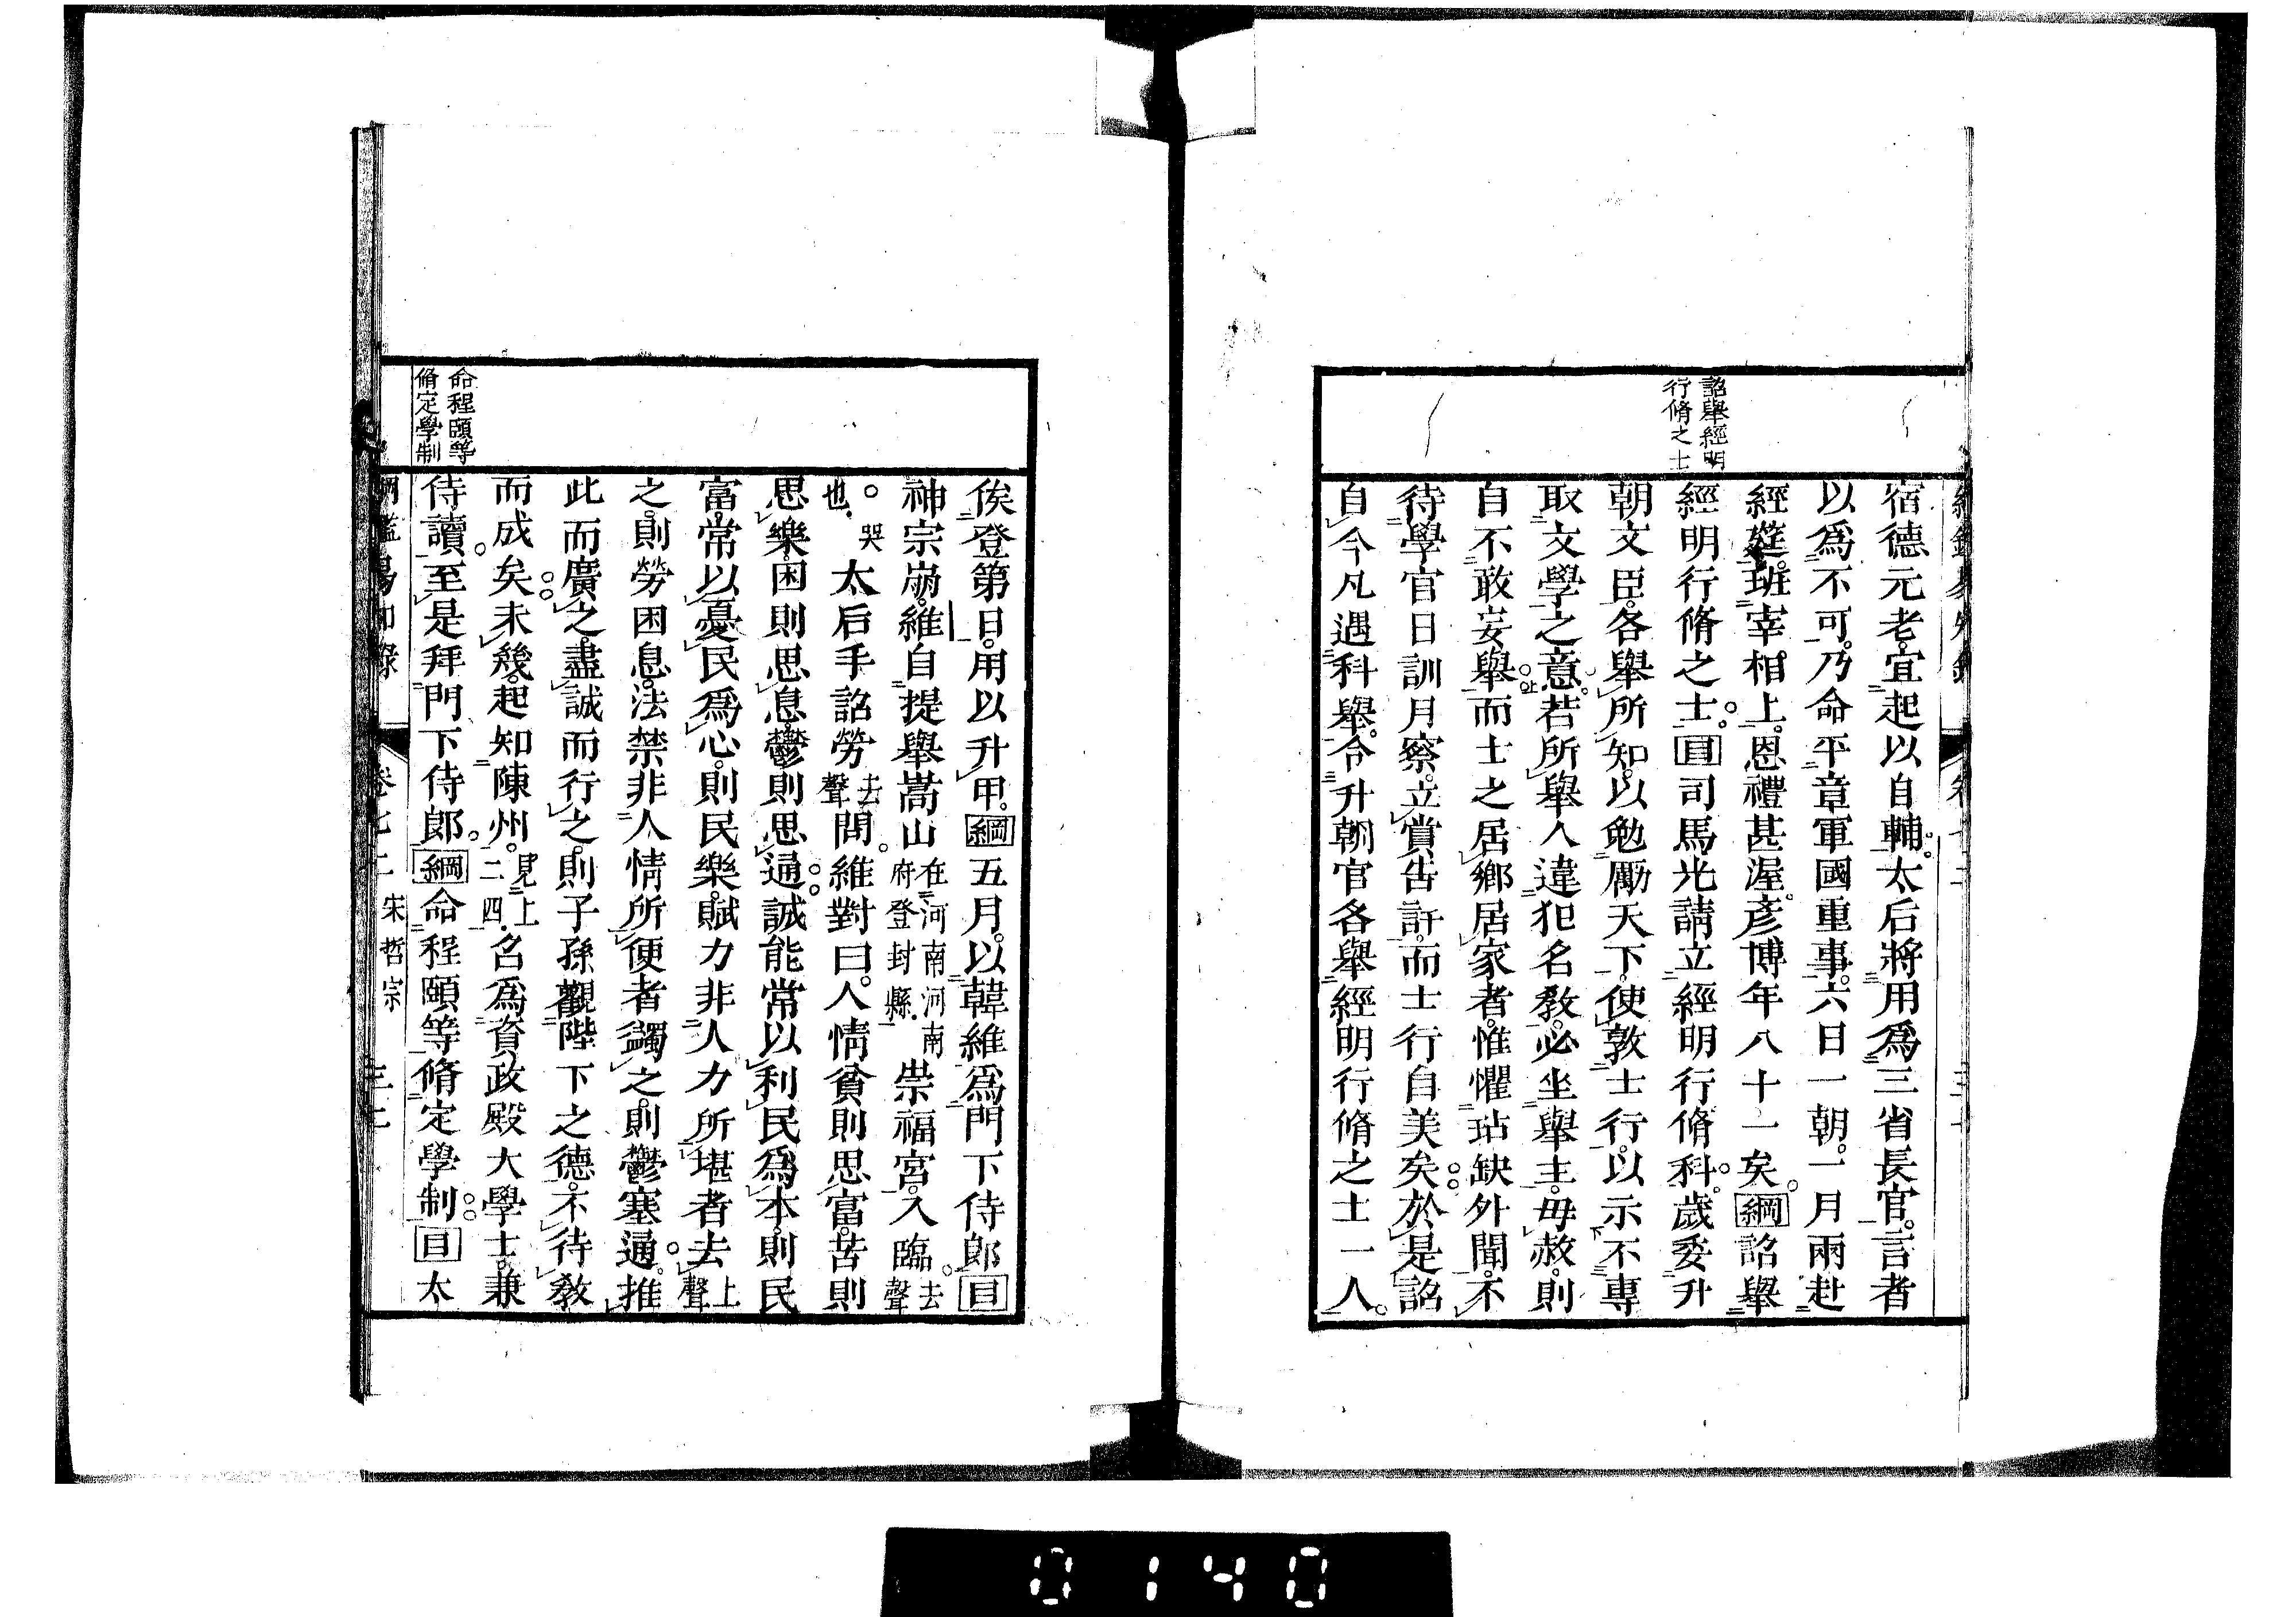 詔舉經明
行脩之士
宿德元老宜起以自輔太后將用爲三省長官言者
以爲不可乃命平章軍國重事六日一朝一月兩赴
經筵班宰相上恩禮甚渥彥博年八十一矣綱詔舉
經明行脩之士目司馬光請立經明行脩科歲委升
朝文臣各舉所知以勉勵天下使敦士行以示不專
取文學之意若所舉人違犯名教必坐舉主毋赦則
自不敢妄舉而士之居鄉居家者惟懼玷缺外聞不
待學官日訓月察立賞告訐而士行自美矣於是詔
自今凡遇科舉令升朝官各舉經明行脩之士一人
命程頤等
脩定學制
俟登第日用以升甲綱五月以韓維爲門下侍郎目
神宗崩維自提舉嵩山在河南河南府登封縣崇福宮入臨去聲
○哭也太后手詔勞去聲問維對曰人情貧則思富苦則
思樂困則思息鬱則思通誠能常以利民爲本則民
富常以憂民爲心則民樂賦力非人力所堪者去上聲
之則勞困息法禁非人情所便者蠲之則鬱塞通推
此而廣之盡誠而行之則子孫觀陛下之德不待教
而成矣未幾起知陳州見上二四名爲資政殿大學士兼
侍讀至是拜門下侍郎綱命程頤等脩定學制目太
綱鑑易知錄 卷七二 宋哲宗
0140